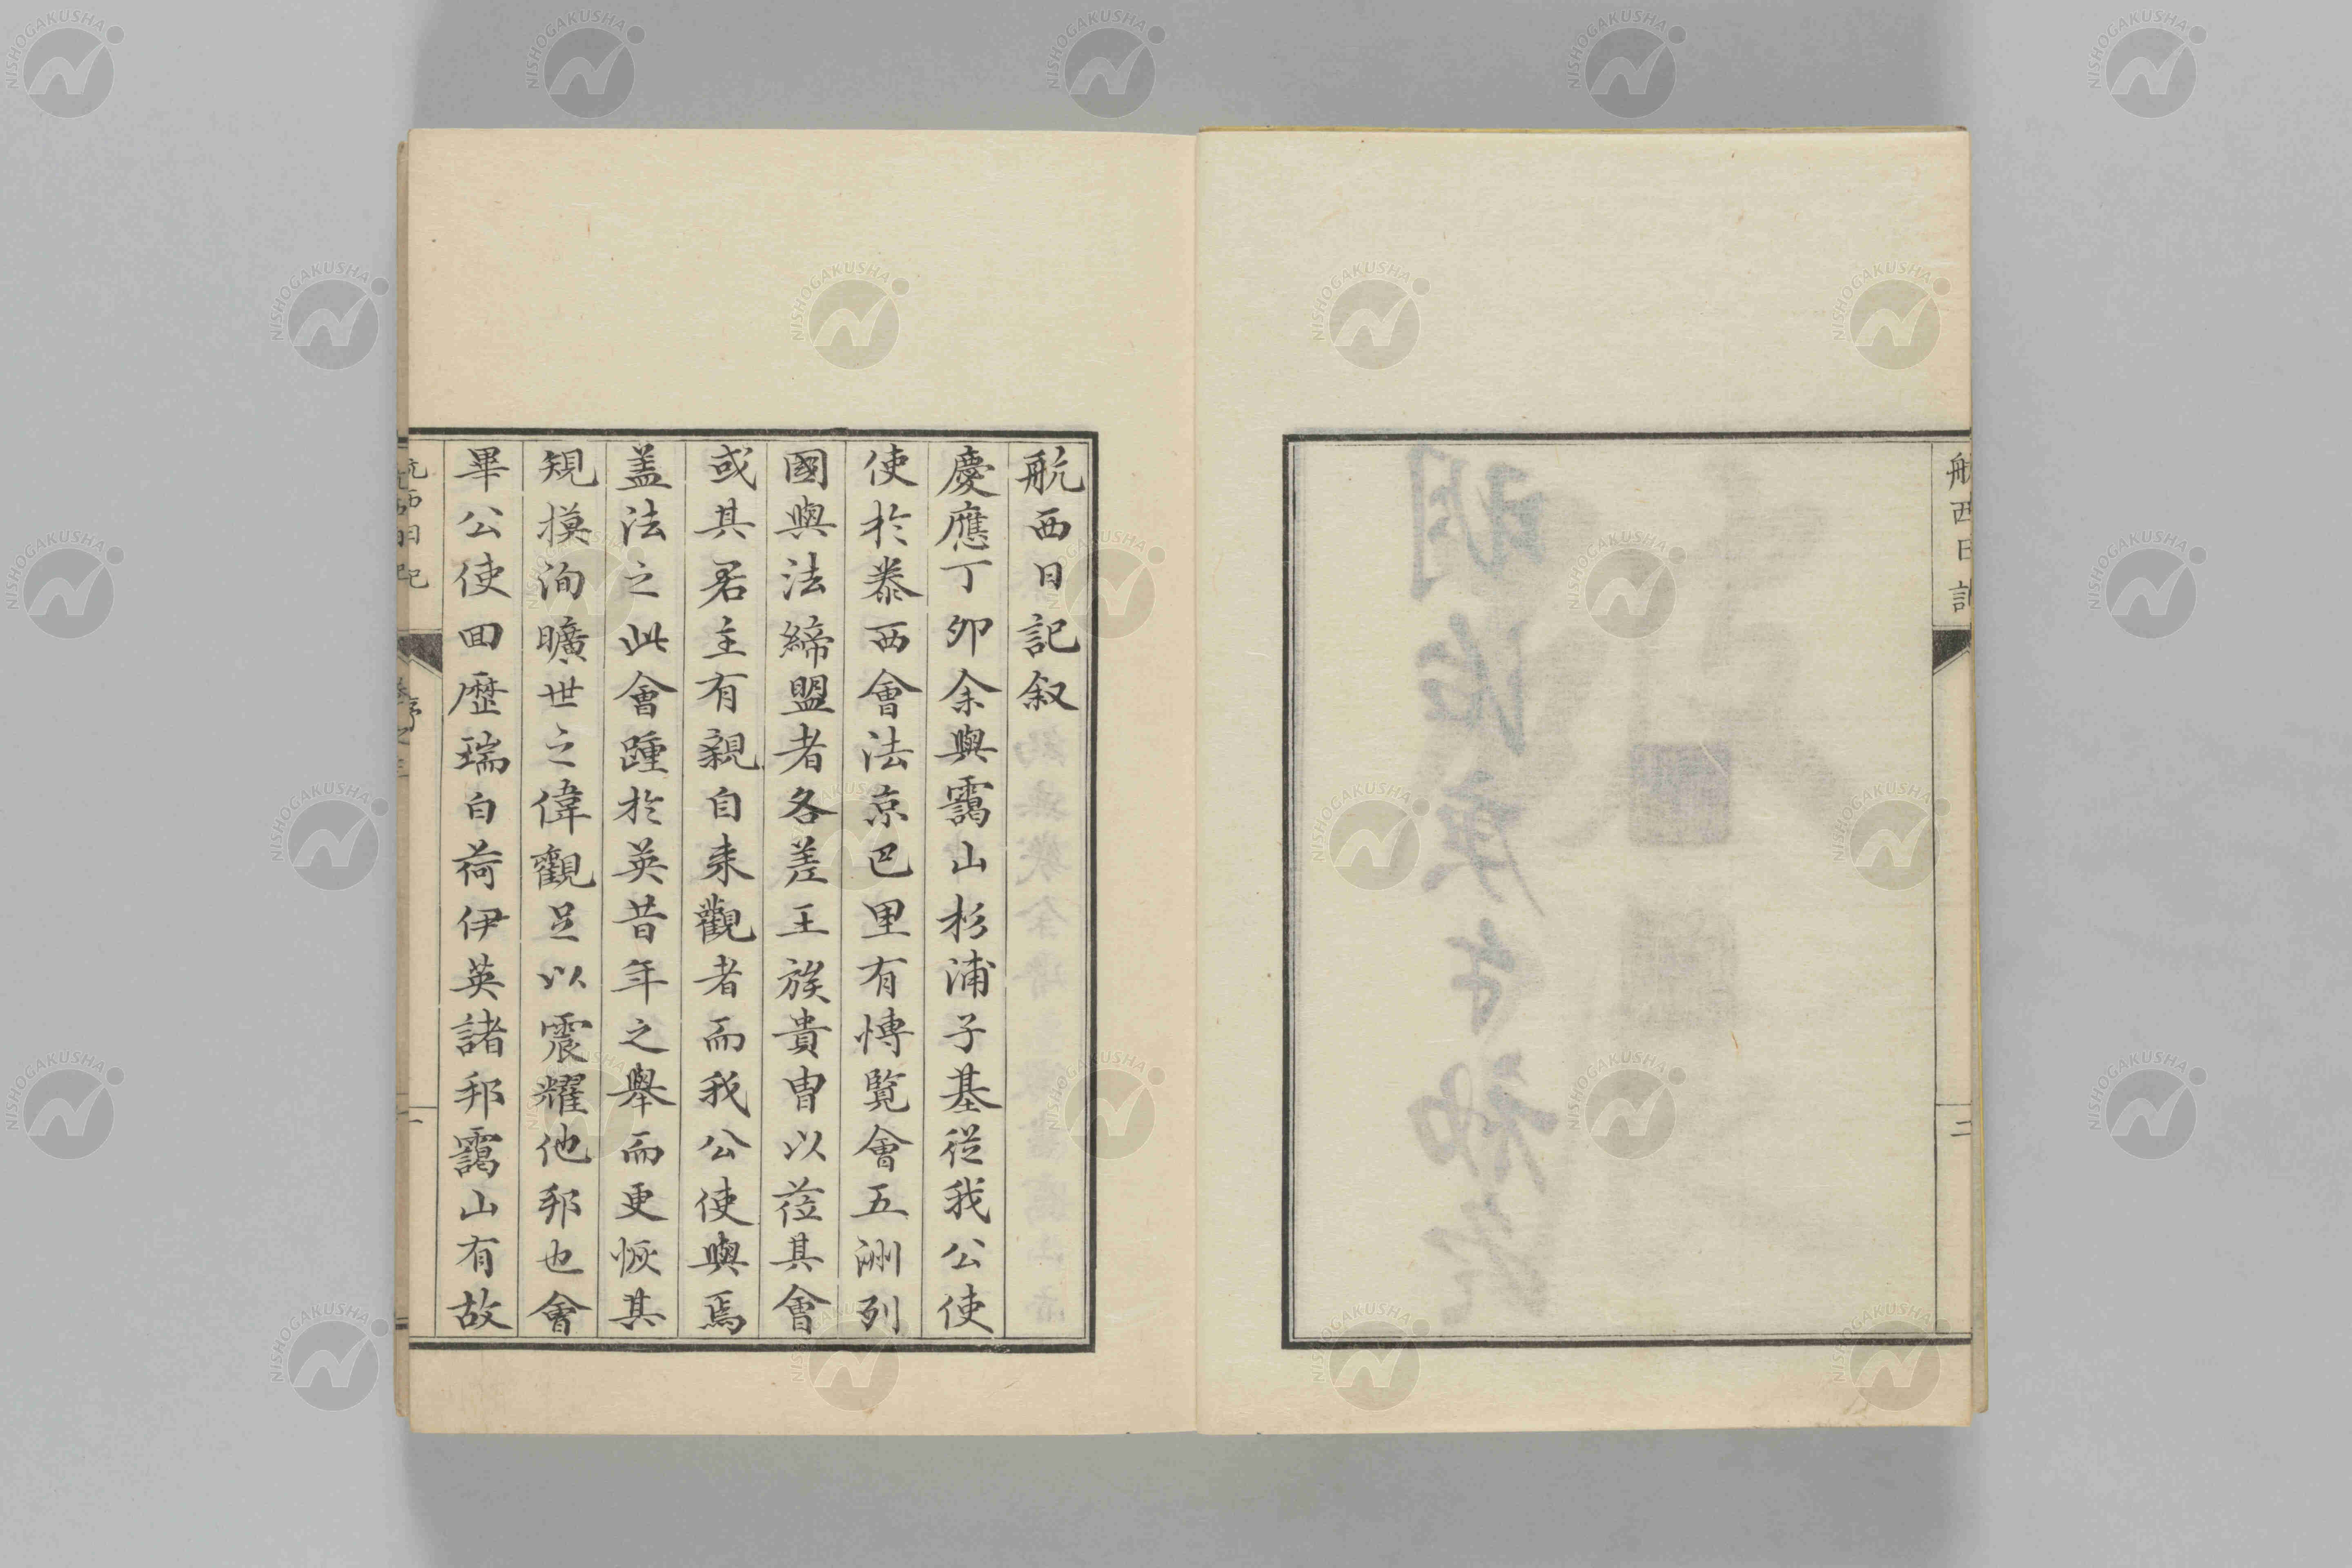 航西日記
二
航西日記叙
慶應丁卯余與靄山杉浦子基從我公使
使於泰西會法京巴里有博覧會五洲列
國與法締盟者各差王族貴冑以莅其會
或其君主有親自来觀者而我公使與焉
盖法之此會踵於英昔年之舉而更恢其
規摸洵曠世之偉觀足以震耀他邦也會
畢公使回歴瑞白荷伊英諸邦靄山有故
NISHOGAKUSHA